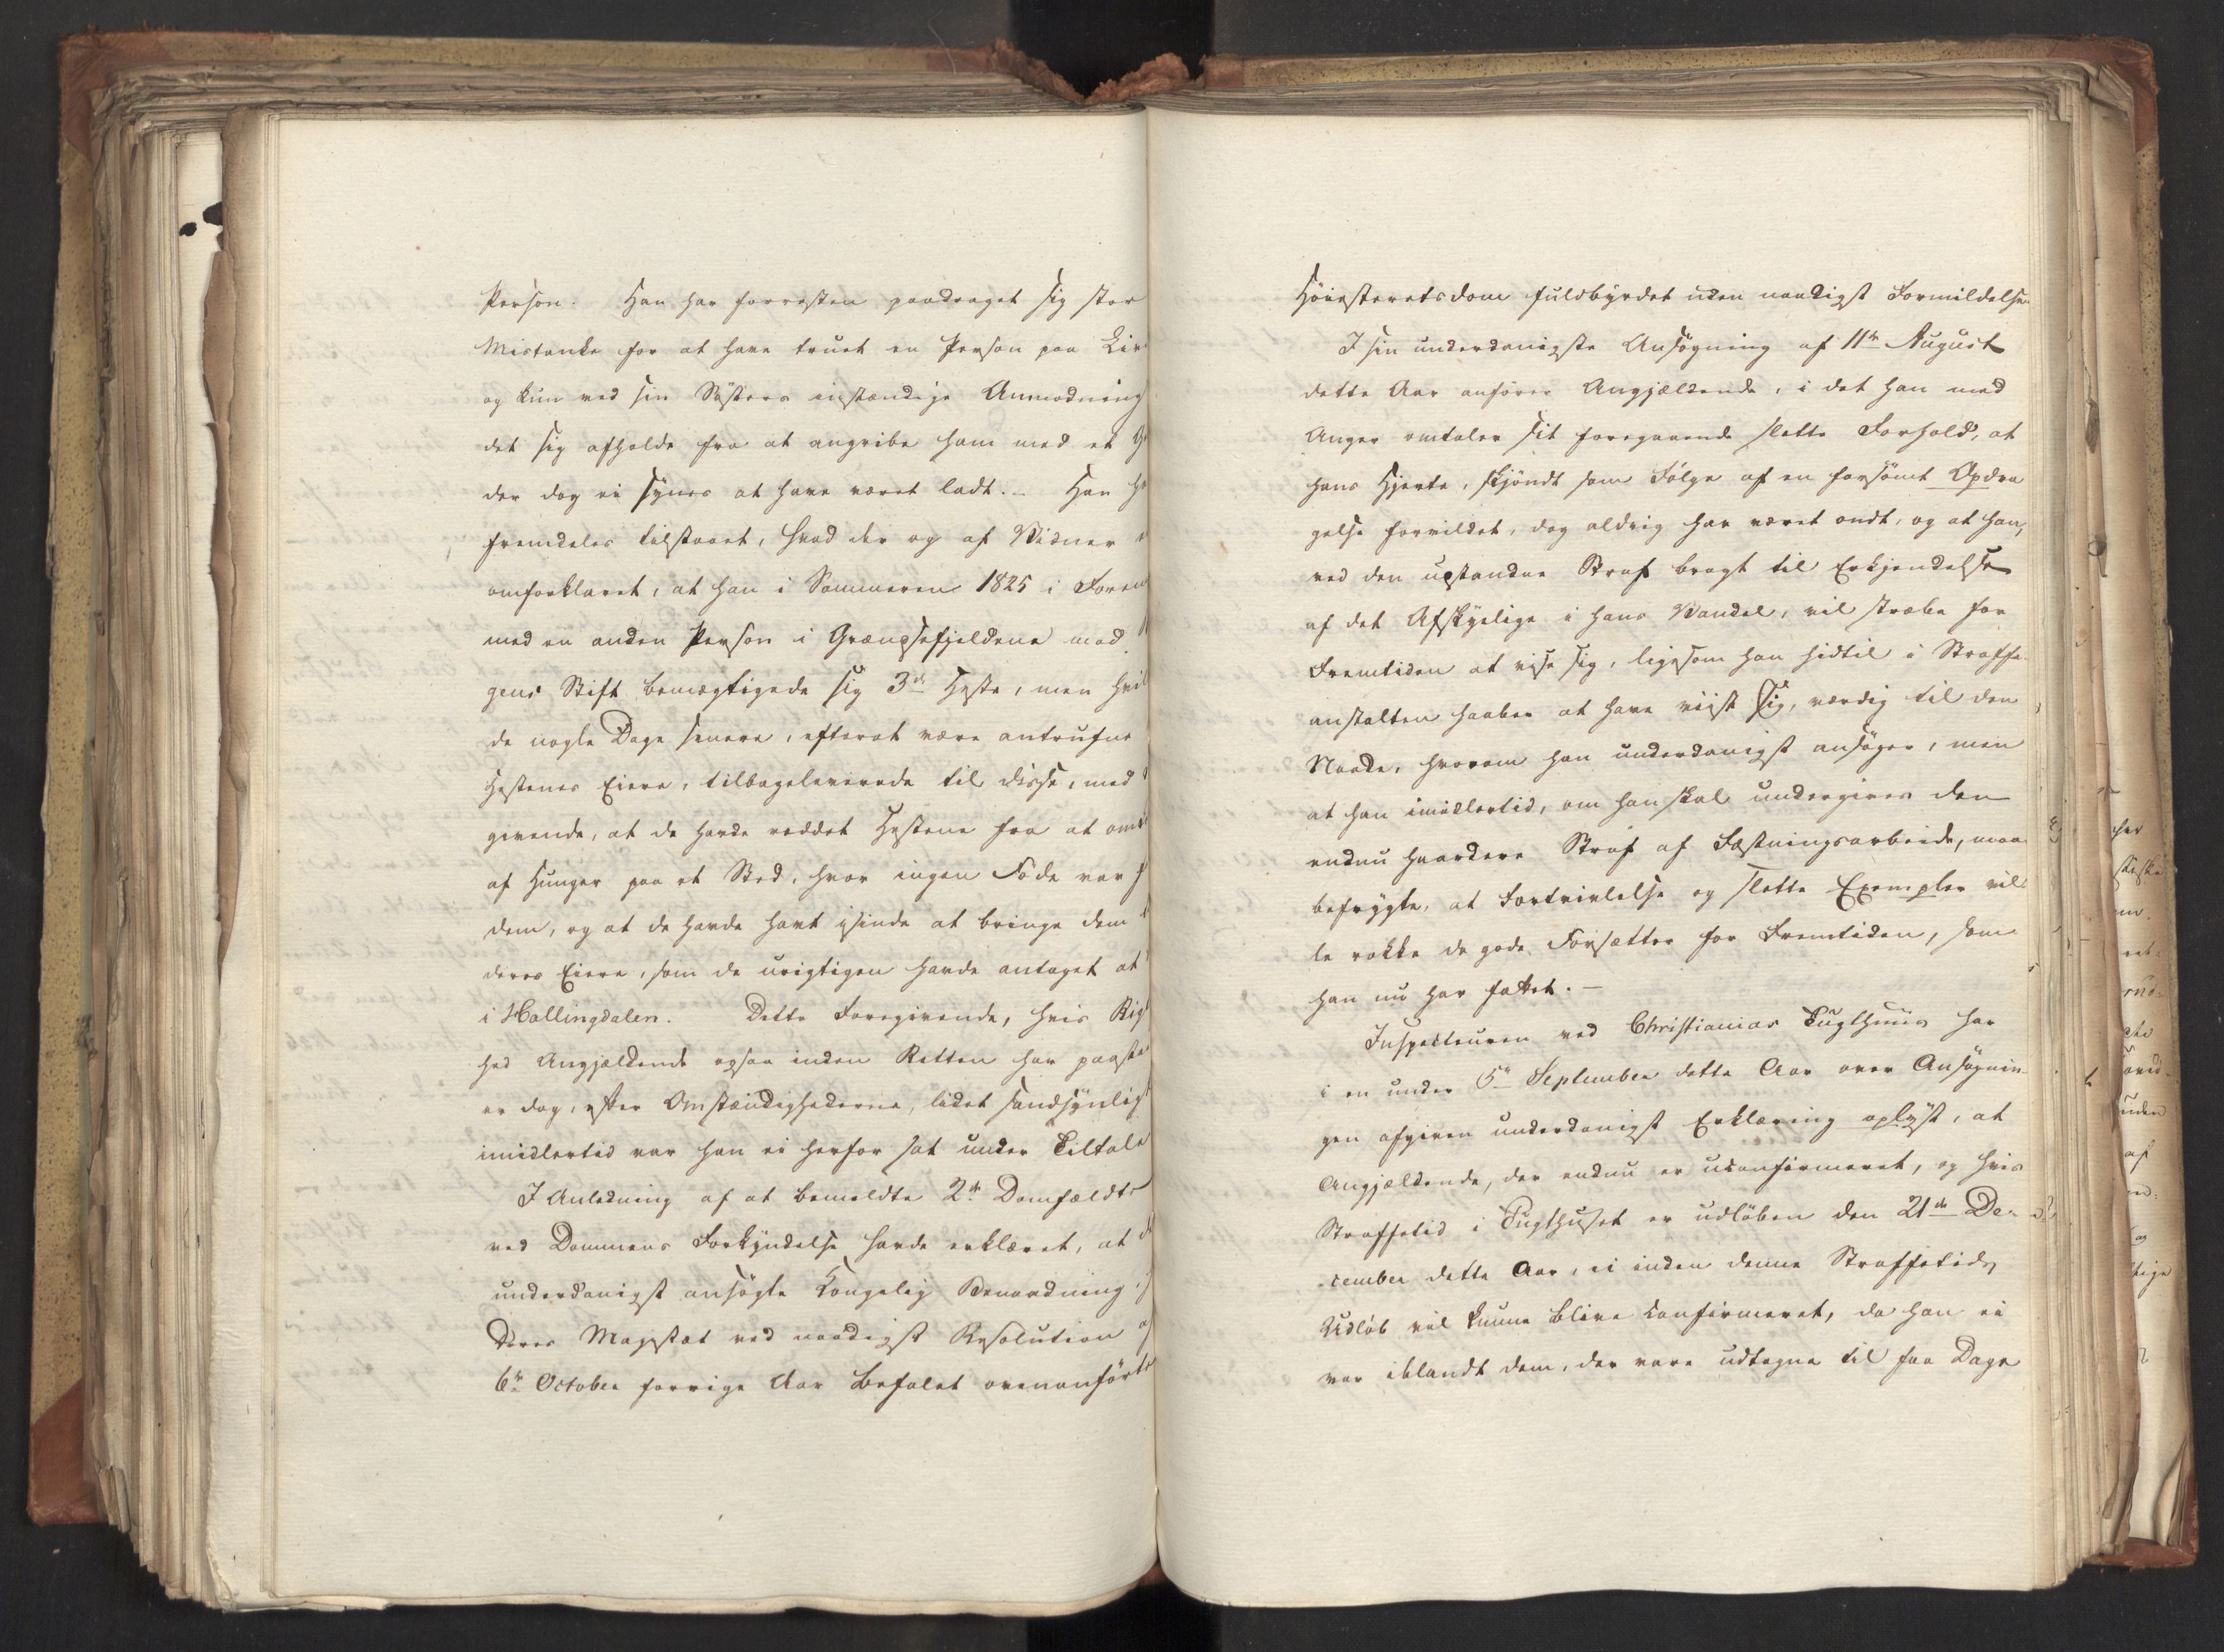 Person. Han har forresten paadraget sig stor
Mistanke for at have truet en Person paa Liv
og kun ved sin Søsters instændige Anmodning
det sig afholdt fra at angribe ham med et
der dog ei synes at have været ladt. – Han
fremdeles tilstaaet, hvad der og af Vidner
omforklaret, at han i Sommeren 1825 i Foren
med en anden Person i Grændsefjeldene mod
gens Stift bemægtigede sig 3de Heste, men hvil
de nogle Dage senere, efterat være antrufne
Hestenes Eiere, tilbageleverede til disse, med
givende, at de havde reddet Hestene fra at om
af Hunger paa et Sted, hvor ingen Føde var
dem, og at de havde havt isinde at bringe dem
deres Eiere, som de urigtigen havde antaget at
i Hallingdalen. Dette Foregivende, hvis Rig
hed Angjældende ogsaa inden Retten har paasta
er dog, efter Omstændighederne, lidet sandsynligt
imidlertid var han ei herfor sat under Tiltale
I Anledning af at bemeldte 2de Domfældte
ved Dommens Forkyndelse havde erklæret, at
underdanigst ansøgte Kongelig Benaadning,
Deres Majestæt ved naadigst Resolution af
6te October forrige Aar befalet ovenanførte
Høiesteretsdom fuldbyrdet uden naadigst Formildelse
I sin underdanigste Ansøgning af 11te August
dette Aar anfører Angjældende, i det han med
Anger omtaler sit foregaaende slette Forhold, at
hans Hjerte, skjøndt som Følge af en forsømt Opdra
gelse forvildet, dog aldrig har været ondt, og at han,
ved den udstandne Straf bragt til Erkjendelse
af det Afskyelige i hans Vandel, vil stræbe for
Fremtiden at vise sig, ligesom han hidtil i Straffe
anstalten haaber at have viist sig, værdig til den
Naade, hvorom han underdanigst ansøger, men
at han imidlertid, om han skal undergives den
endnu haardere Straf af Fæstningsarbeide, maa
befrygte, at Fortvivlelse og slette Exempler vil
le rokke de gode Forsætter for Fremtiden, som
han nu har fattet. –
Inspecteuren ved Christianias Tugthuus har
i en under 5te September dette Aar over Ansøgnin
gen afgiven underdanigst Erklæring oplyst, at
Angjældende, der endnu er uconfirmeret, og hvis
Straffetid i Tugthuset er udløben den 21de De-
cember dette Aar, ei inden denne Straffetids
Udløb vil kunne blive confirmeret, da han ei
var iblandt dem, der vare udtagne til faa Dage